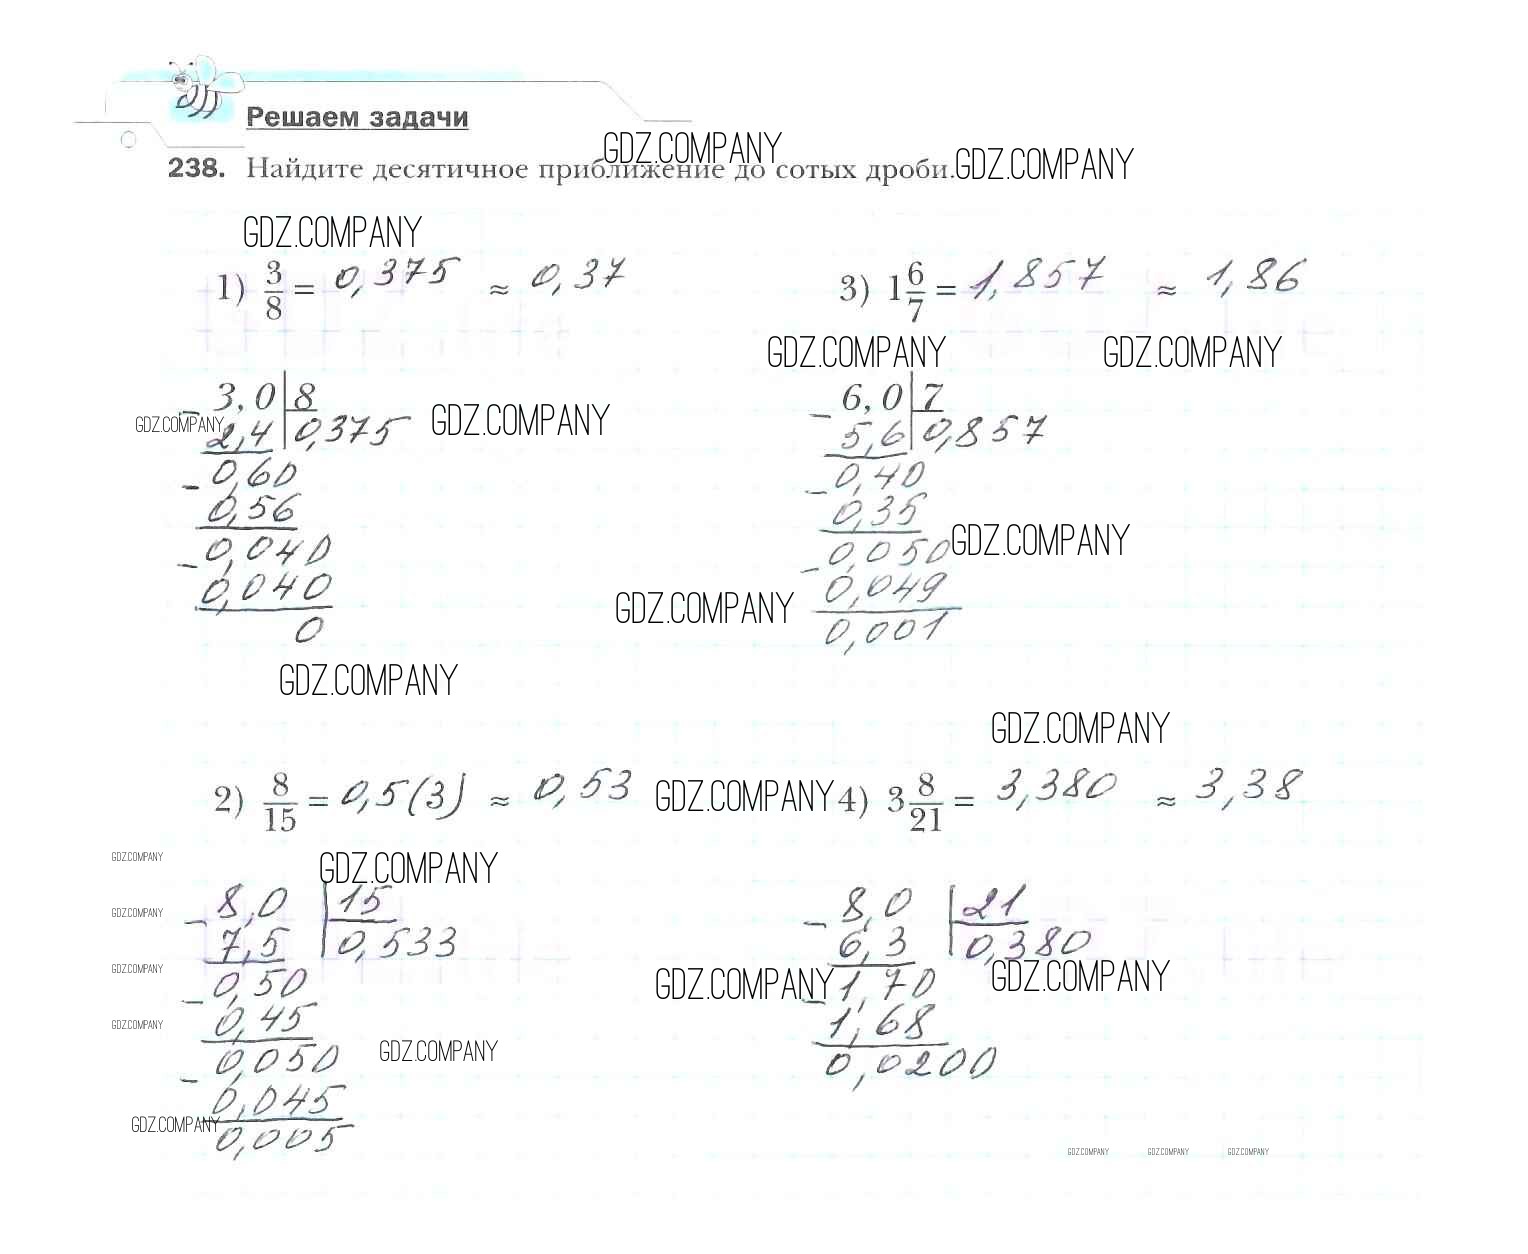 Решаем задачи
GDZ.COMPANY
238. Найдите десятичное приближение до сотых дроби.
GDZ.COMPANY
GDZ.COMPANY
1) 3/8 = 0,375 ≈ 0,37
3) 1 6/7 = 1,857 ≈ 1,86
GDZ.COMPANY GDZ.COMPANY
3,0 8
GDZ.COMPANY
- 2,4 0,375
GDZ.COMPANY
0,60
- 0,56
0,040
- 0,040
0
6,0 7
- 5,6 0,857
0,40
- 0,35
GDZ.COMPANY
0,050
- 0,049
0,001
GDZ.COMPANY
GDZ.COMPANY
GDZ.COMPANY
2) 8/15 = 0,5(3) ≈ 0,53
GDZ.COMPANY
4) 3 8/21 = 3,380 ≈ 3,38
GDZ.COMPANY
GDZ.COMPANY
8,0 15
GDZ.COMPANY
- 7,5 0,533
GDZ.COMPANY
0,50
GDZ.COMPANY
- 0,45
0,050
GDZ.COMPANY
- 0,045
GDZ.COMPANY
0,005
8,0 21
- 6,3 0,380
GDZ.COMPANY GDZ.COMPANY
1,70
- 1,68
0,0200
GDZ.COMPANY GDZ.COMPANY GDZ.COMPANY